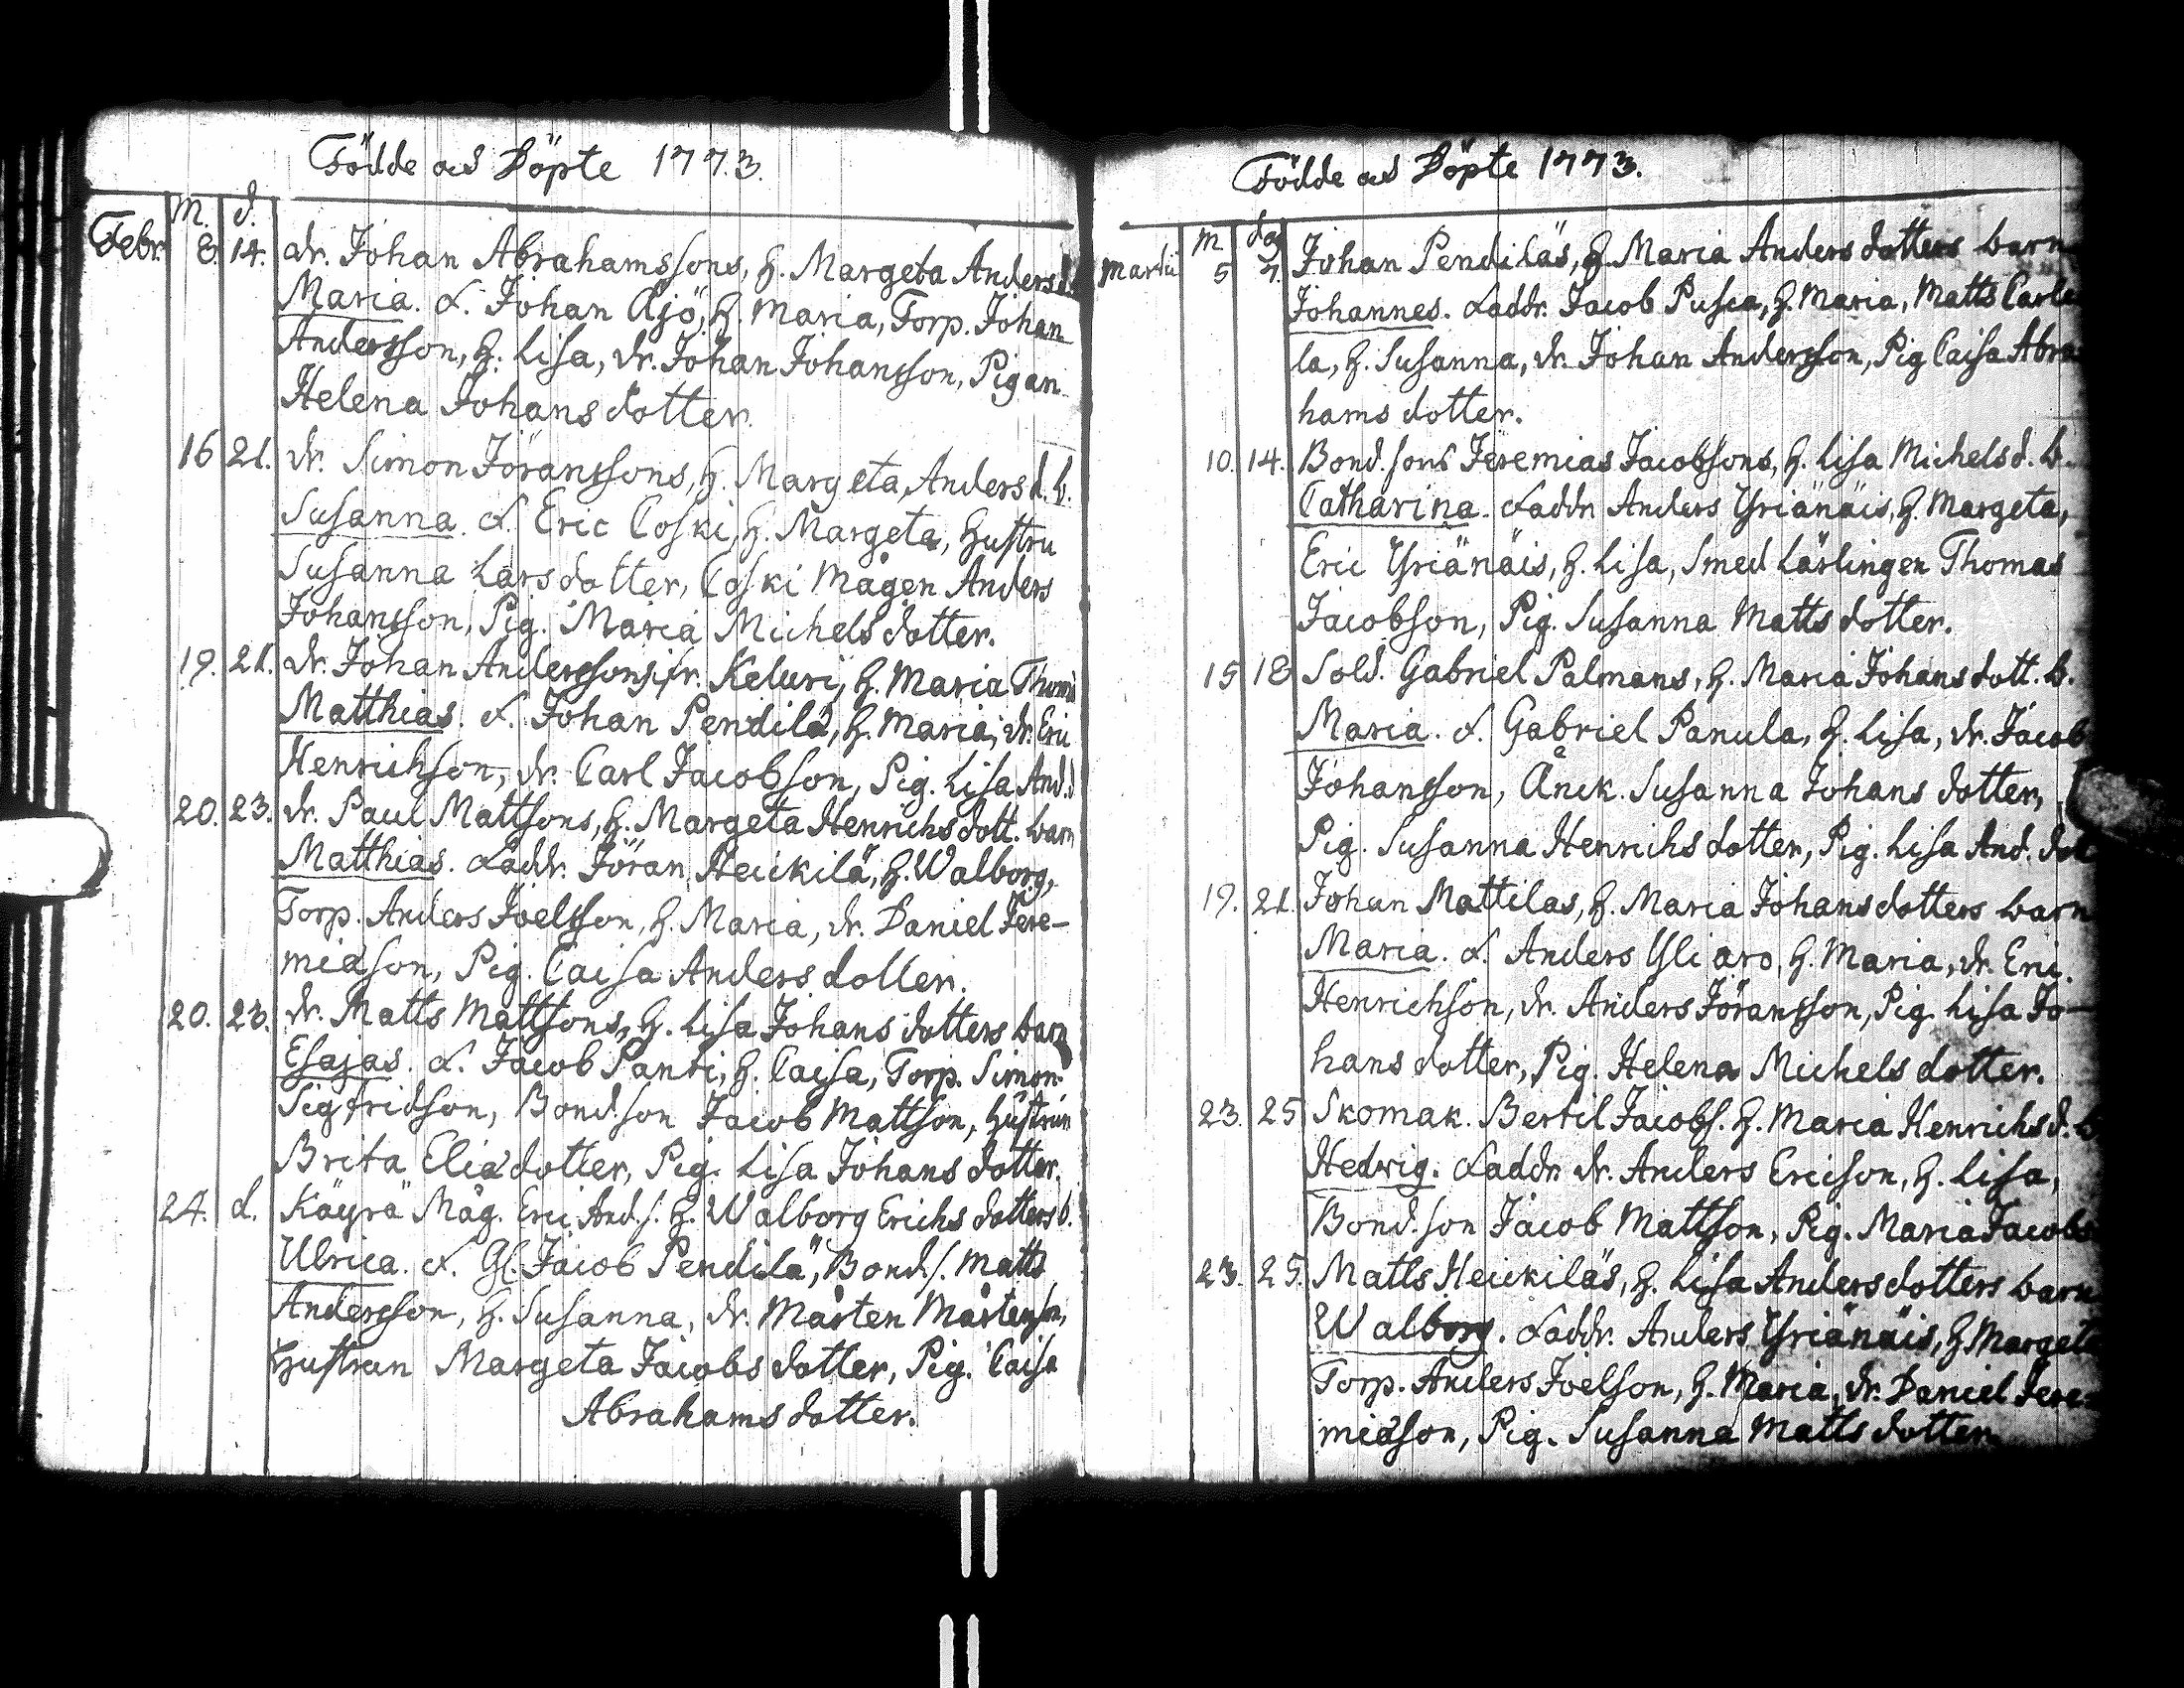 Födde och Döpte 1773.
m. d.
Febr. 8. 14. dr. Johan Abrahamssons, H. Margeta Anders d.
Maria. F. Johan Äjö, H. Maria, Torp. Johan
Andersson, H. Lisa, dr. Johan Johansson, Pigan
Helena Johans dotter.
16 21. dr. Simon Jöranssons, H. Margeta Anders d. b.
Susanna. F. Eric Coski, H. Margeta, Hustru
Susanna Larsdotter, Coski Mågen Anders
Johansson, Pig. Maria Michels dotter.
19. 21. dr. Johan Anderssons, ifr. Keluri, H. Maria Thoms
Matthias. F. Johan Pendilä, H. Maria, dr. Eric
Henrichson, dr. Carl Jacobson, Pig. Lisa And. d
20. 23. dr. Paul Mattsons, H. Margeta Henrichs dott. barn
Matthias. Faddr. Jöran Heickilä, H. Walborg,
Torp. Anders Joelsson, H. Maria, dr. Daniel Jere-
miæson, Pig. Caisa Anders dotter.
20. 23. dr. Matts Mattsons, H. Lisa Johans dotters barn
Esajas. F. Jacob Panti, H. Caisa, Torp. Simon
Sigfridson, Bond. son Jacob Mattson, Hustrun
Brita Eliæ dotter, Pig. Lisa Johans dotter.
24. d. Käyrä Måg. Eric And. s. H. Walborg Erichs dotters b.
Ulrica. F. Gl. Jacob Pendilä, Bond. s. Matts
Andersson, H. Susanna, dr. Mårten Mårtenson,
Hustrun Margeta Jacobs dotter, Pig. Caisa
Abrahams dotter.
Födde och Döpte 1773.
m dag
Martii 5 7. Johan Pendiläs, H. Maria Anders dotters barn
Johannes. Faddr. Jacob Pusca, H. Maria, Matts Carle
la, H. Susanna, dr. Johan Andersson, Pig Caisa Abra
hams dotter.
10. 14. Bond. sons Jeremias Jacobsons, H. Lisa Michels d. b.
Catharina. Faddr. Anders Yriänäis, H. Margeta,
Eric Yriänäis, H. Lisa, Smed Lärlingen Thomas
Jacobson, Pig. Susanna Matts dotter.
15 18 Sold. Gabriel Palmans, H. Maria Johans dott. b.
Maria. F. Gabriel Panula, H. Lisa, dr. Jacob
Johansson, Änck. Susanna Johans dotter,
Pig. Susanna Henrichs dotter, Pig. Lisa And. dot
19. 21. Johan Mattilas, H. Maria Johans dotters barn
Maria. F. Anders Yli aro, H. Maria, dr. Eric
Henrichson, dr. Anders Jöransson, Pig. Lisa Jo-
hans dotter, Pig. Helena Michels dotter.
23. 25 Skomak. Bertil Jacobs. H. Maria Henrichs d. b
Hedwig. Faddr. dr. Anders Ericson, H. Lisa,
Bond. son Jacob Mattson, Pig. Maria Jacobs
23. 25. Matts Heickiläs, H. Lisa Anders dotters barn
Walborg. Faddr. Anders Yriänäis, H. Margeta
Torp. Anders Joelson, H. Maria, dr. Daniel Jere-
miæson, Pig. Susanna Matts dotter